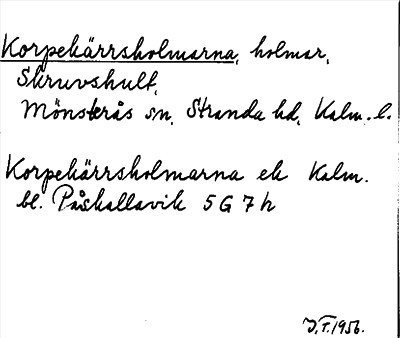 Korpekärrsholmarna, holmar,
Skruvshult,
Mönsterås sn, Stranda hd, Kalm. l.
Korpekärrsholmarna ek Kalm.
bl. Påskallavik 5 G 7 h
J.T. 1956.